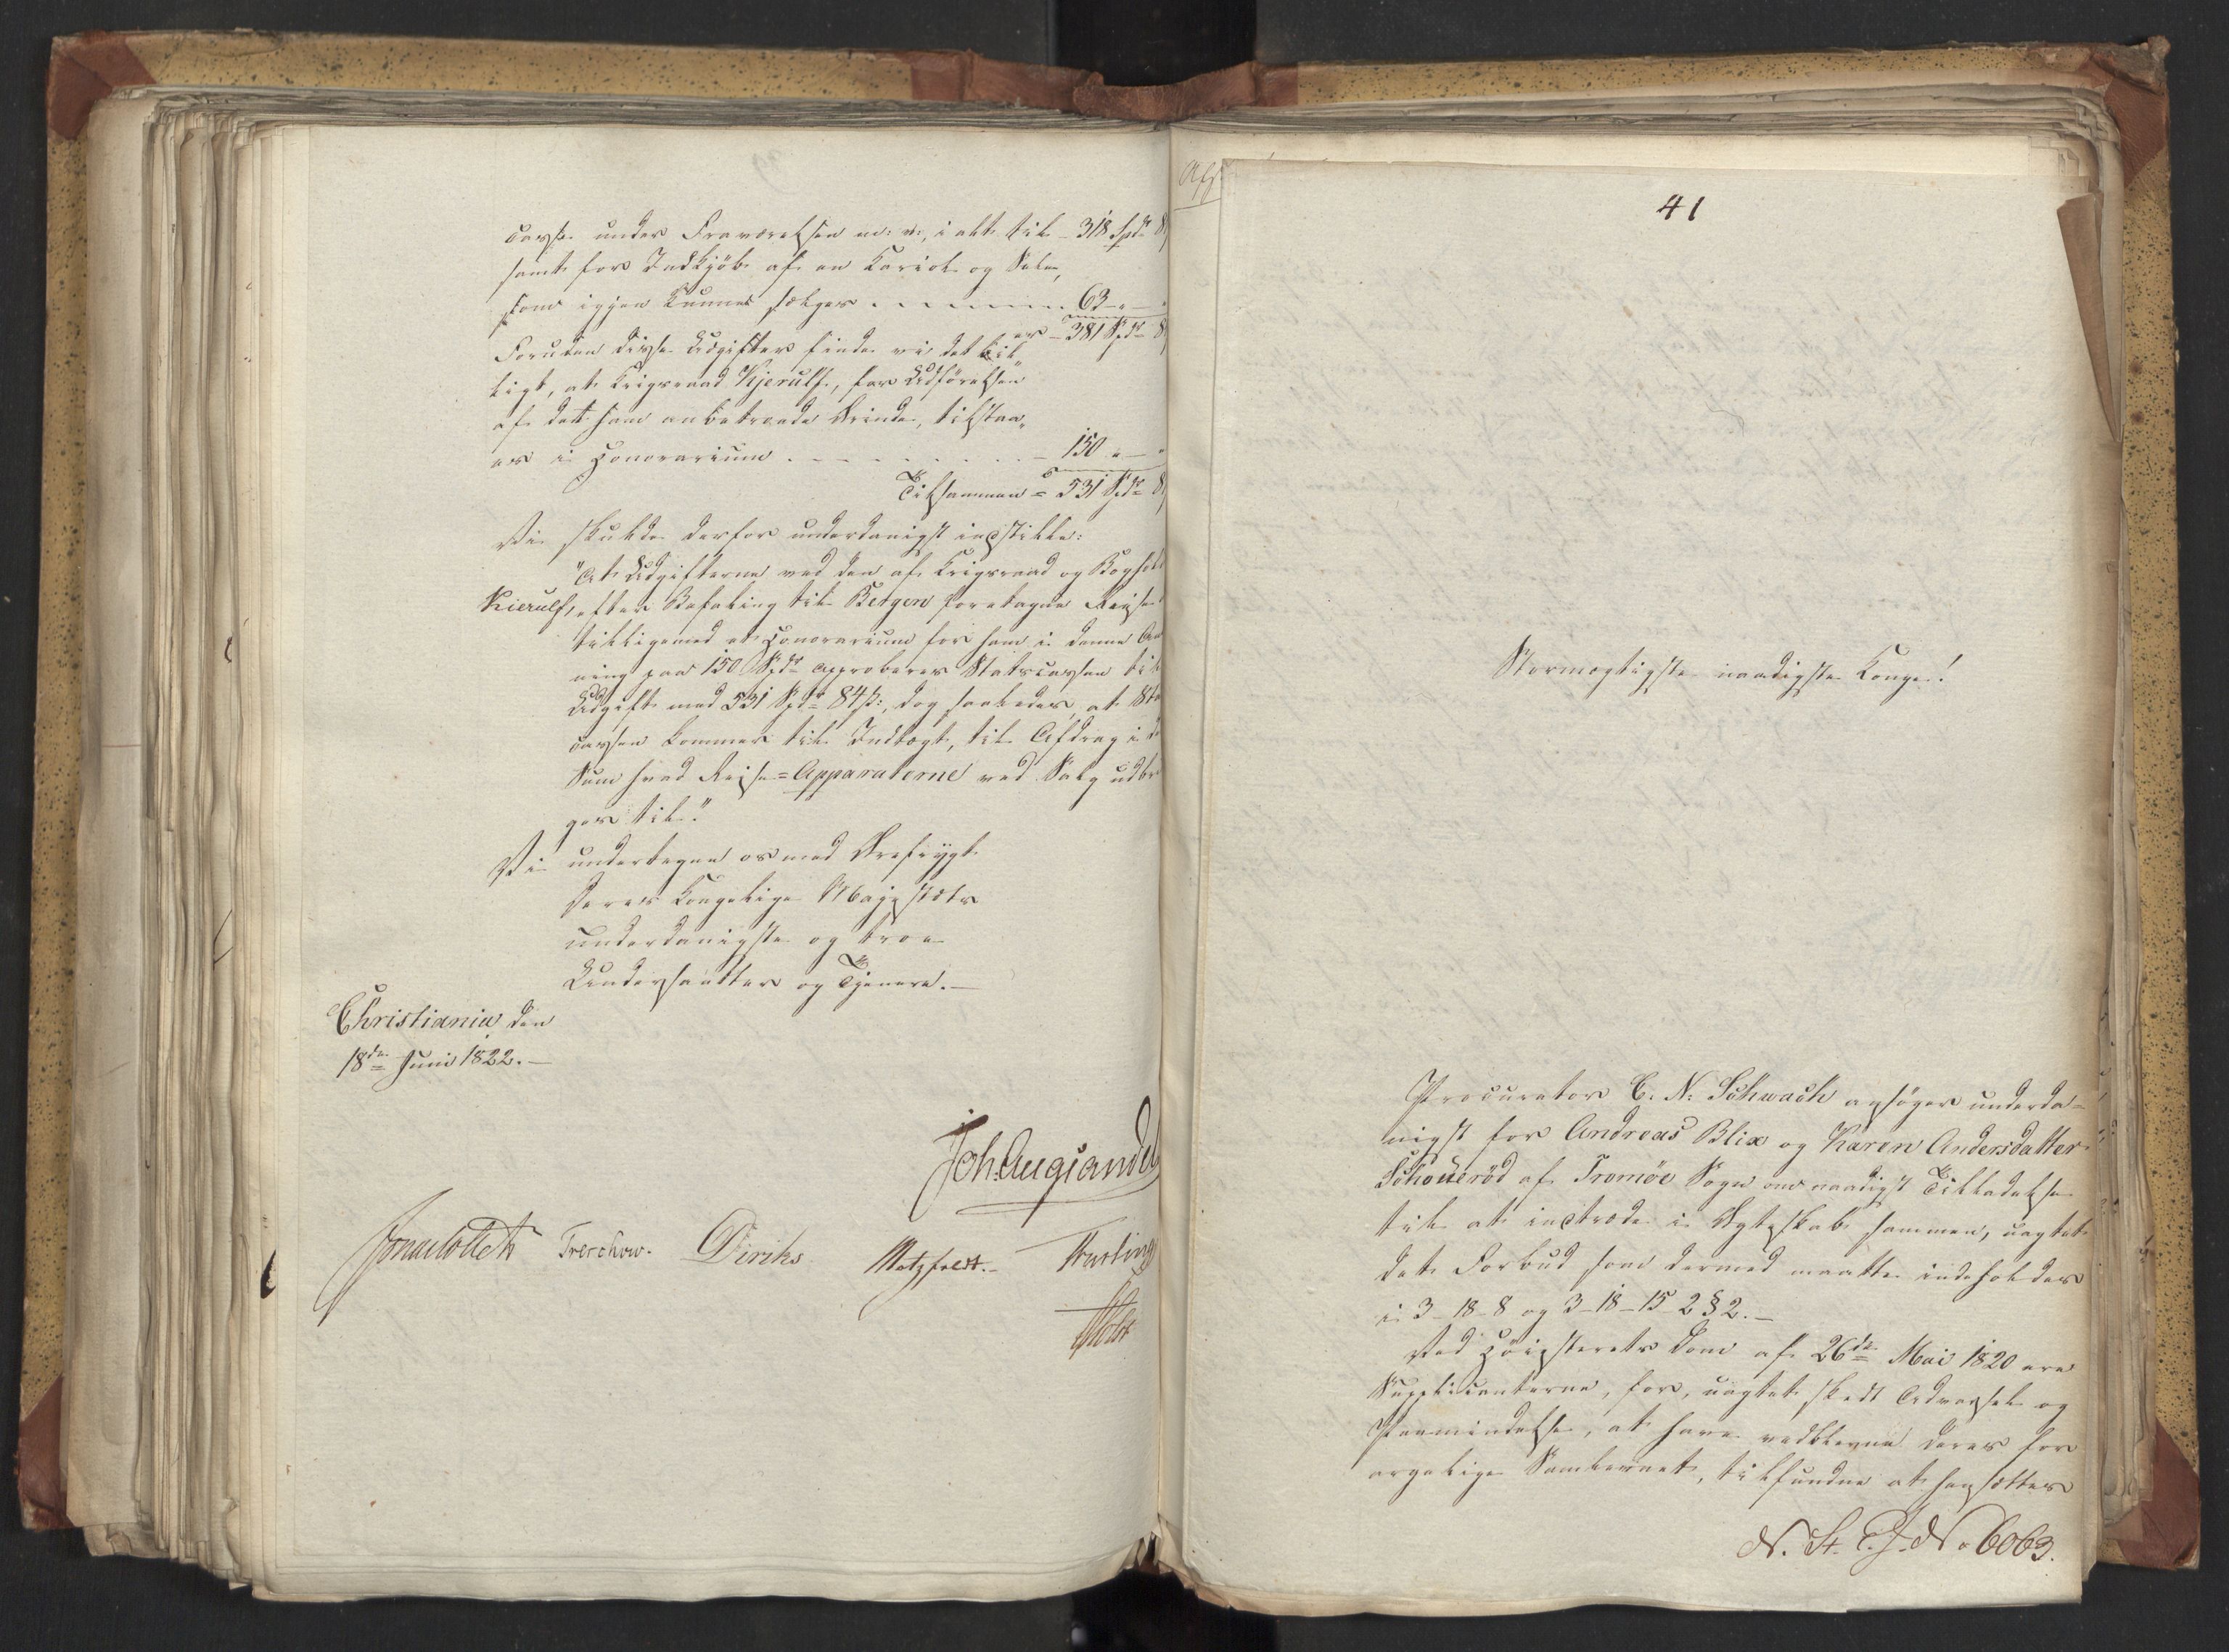 casse under Fraværelsen m: v:, i alt til - 318 Spd 8
samt for Indkjøb af en Kariol og Sele,
som igjen kunne sælges - - - - - - - 63 " — "
er - 381 Spd 8
Foruden disse Udgifter finde vi det bil„
ligt, at Krigsraad Kjerulf, for Udførelsen
af det ham anbetroede Ærinde, tilstaa„
es i Honorarium - - - - - - - - 150 " — "
Tilsammen = 531 Spd 8
Vi skulde derfor underdanigst indstille:
"At Udgifterne ved den af Krigsraad og Boghol
Kierulf, efter Befaling til Bergen foretagne Reise
tilligemed et Honorarium for ham i denne An
ning paa 150 Spdr approberes Statscassen til
Udgift med 531 Spdr 84 ß:, dog saaledes, at Sta
cassen kommer til Indtægt, til Afdrag i d
Sum hvad Reise=Apparaterne ved Salg udbr
ges til."
Vi undertegne os med Ærefrygt
Deres Kongelige Majestæts
underdanigste og troe
Undersaatter og Tjenere. —
Christiania den
18de Juni 1822. —
Joh. Aug Sandel
Jonas Collett Treschow. Diriks Motzfeldt. - Fasting
Holst
Aff
41
Stormægtigste naadigste Konge!
Procurator C. N. Schwach ansøger underda=
nigst for Andreas Blix og Karen Andersdatter
Schouerød af Tromøe Sogn om naadigst Tilladelse
til at indtræde i Ægteskab sammen, uagtet
det Forbud som dermod maatte indeholdes
i 3-18-8 og 3-18-15 2 § 2. —
Ved Høiesterets Dom af 26de Mai 1820 ere
Supplicanterne, for, uagtet skedt Advarsel og
Paamindelse, at have vedblevne deres for
argelige Samlevnet, tilfundne at hensættes
N. St. C. J. No 6063.